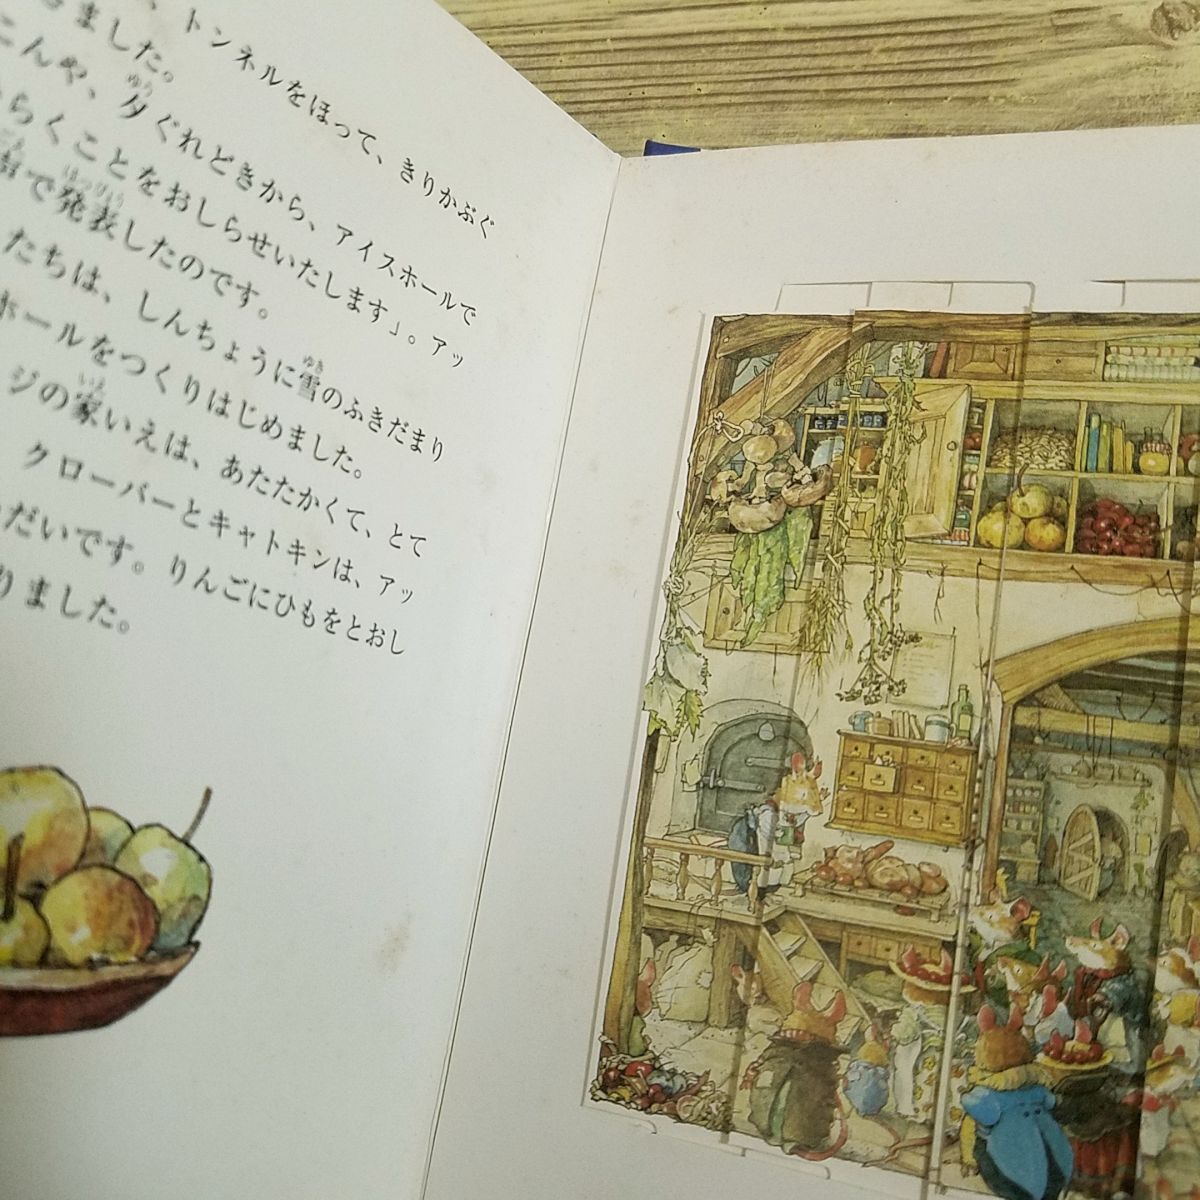 、トンネルをほって、きりかぶぐ
きました。
こんや、夕ぐれどきから、アイスホールで
らくことをおしらせいたします」。アッ
で発表したのです。
たちは、しんちょうに雪のふきだまり
ホールをつくりはじめました。
ジの家いえは、あたたかくて、とて
クローバーとキャトキンは、アッ
だいです。りんごにひもをとおし
りました。